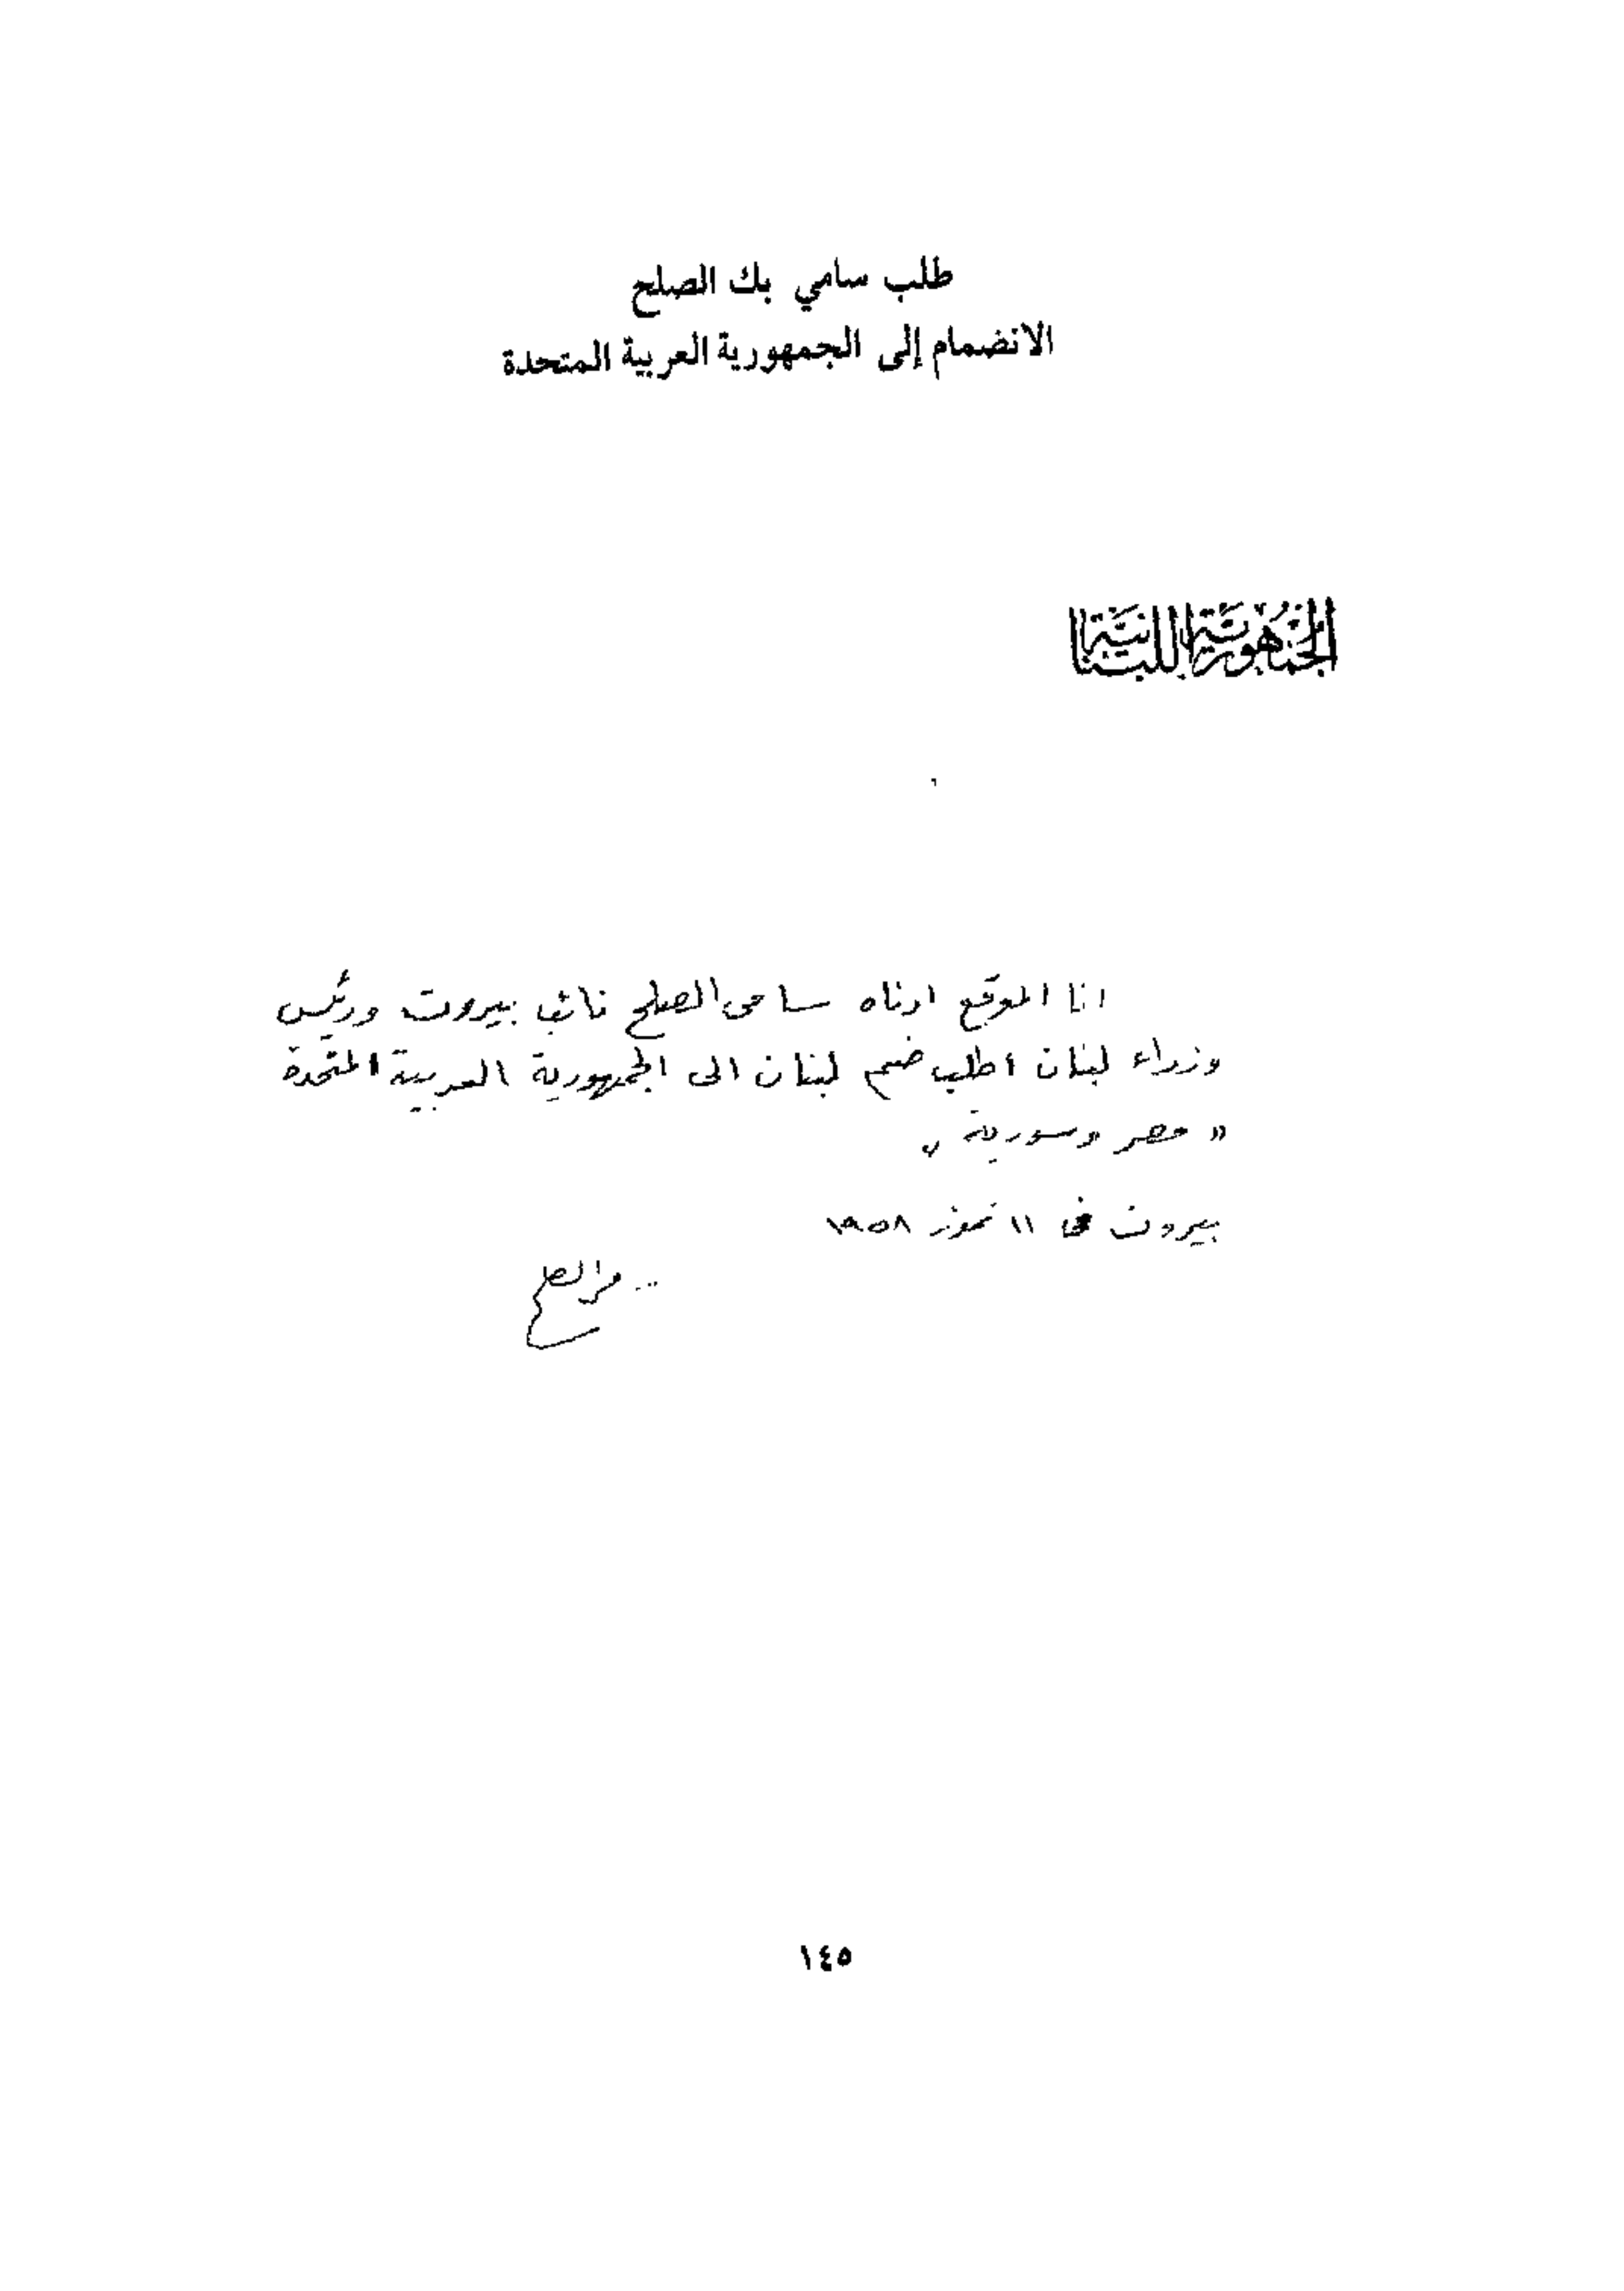 طلب سامي بك الصلح
الانضمام إلى الجمهورية العربية المتحدة
الجمهورية اللبنانية
انا الموقع ادناه سامي الصلح نائب بيروت ورئيس
وزراء لبنان اطلب ضم لبنان الى الجمهورية العربية المتحدة
« مصر وسورية »
بيروت في ١١ تموز ١٩٥٨
سامي الصلح
١٤٥